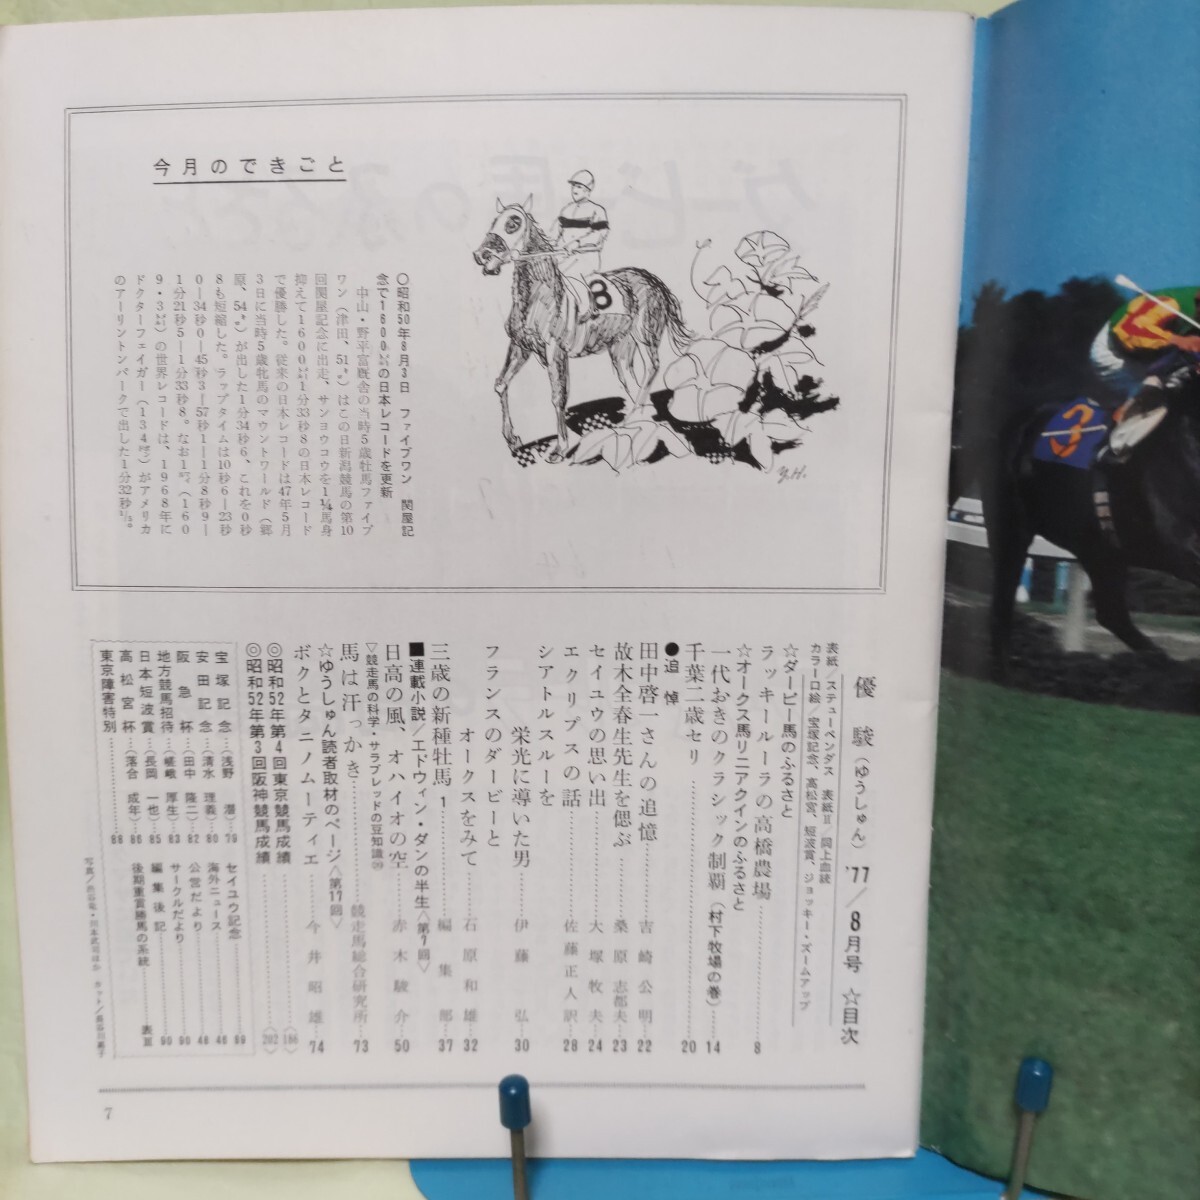 今月のできごと
〇昭和50年8月3日　ファイブワン　関屋記
念で1600㍍の日本レコードを更新
中山・野平富厩舎の当時5歳牡馬ファイブ
ワン（津田、51㌔）はこの日新潟競馬の第10
回関屋記念に出走、サンヨウコウを1¼馬身
抑えて1600㍍1分33秒8の日本レコード
で優勝した。従来の日本レコードは47年5月
3日に当時5歳牝馬のマウントワールド（郷
原、54㌔）が出した1分34秒6、これを0秒
8も短縮した。ラップタイムは10秒6―23秒
0―34秒0―45秒3―57秒1―1分8秒9―
1分21秒5―1分33秒8。なお1㍄（160
9・3㍍）の世界レコードは、1968年に
ドクターフェイガー（134㍀）がアメリカ
のアーリントンパークで出した1分32秒⅕。
Y.H.
8
3
優駿（ゆうしゅん）'77／8月号　☆目次
表紙／ステューペンダス　表紙Ⅱ／同上血統
カラー口絵／宝塚記念、高松宮、短波賞、ジョッキー・ズームアップ
☆ダービー馬のふるさと
ラッキールーラの高橋農場 8
☆オークス馬リニアクインのふるさと
一代おきのクラシック制覇（村下牧場の巻） 14
千葉二歳セリ 20
●追悼
田中啓一さんの追憶 吉崎公明 22
故木全春生先生を偲ぶ 桑原志都夫 23
セイユウの思い出 大塚牧夫 24
エクリプスの話 佐藤正人訳 28
シアトルスルーを
栄光に導いた男 伊藤弘 30
フランスのダービーと
オークスをみて 石原和雄 32
三歳の新種牡馬1 編集部 37
■連載小説／エドウィン・ダンの半生〈第7回〉
日高の風、オハイオの空 赤木駿介 50
▽競走馬の科学・サラブレッドの豆知識⑳
馬は汗っかき 競走馬総合研究所 73
☆ゆうしゅん読者取材のページ〈第17回〉
ボクとタニノムーティエ 今井昭雄 74
◎昭和52年第4回東京競馬成績 〈186〉
◎昭和52年第3回阪神競馬成績 〈202〉
宝塚記念…（浅野 潜） 79
安田記念…（清水 理義） 80
阪急杯…（田中 隆二） 82
地方競馬招待…（嵯峨 厚生） 83
日本短波賞…（長岡 一也） 85
高松宮杯…（落合 成年） 86
東京障害特別 88
セイユウ記念 89
海外ニュース 46
公営だより 48
サークルだより 90
編集後記 90
後期重賞勝馬の系統 表Ⅲ
7